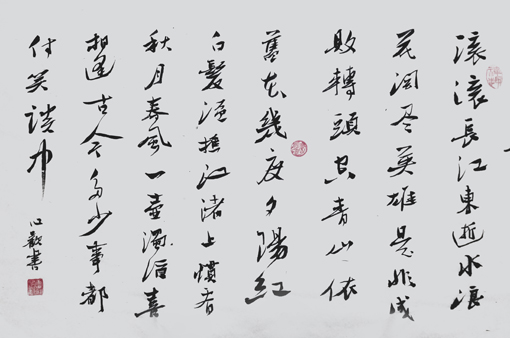 滚滚長江東逝水浪
花淘尽英雄是非成
敗轉頭空青山依
舊在幾度夕陽紅
白髮渔樵江渚上慣看
秋月春風一壺濁酒喜
相逢古今多少事都
付笑談中
心書